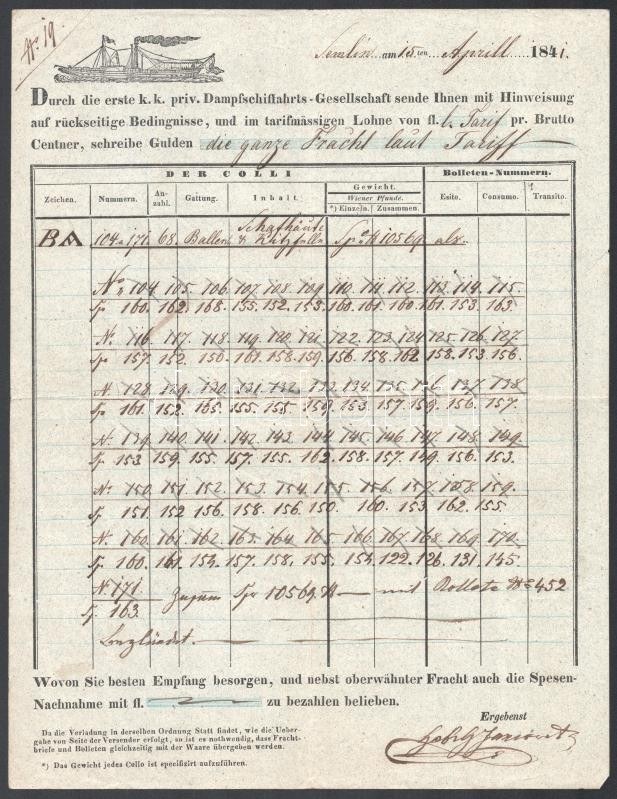 No. 19
Semlin am 15ten Aprill 1841.
Durch die erste k. k. priv. Dampfschiffahrts-Gesellschaft sende Ihnen mit Hinweisung
auf rückseitige Bedingnisse, und im tarifmässigen Lohne von fl. l. Tarif pr. Brutto
Centner, schreibe Gulden die ganze Fracht laut Tariff
DER COLLI Bolleten-Nummern.
Zeichen. Nummern. An-zahl. Gattung. Inhalt. Gewicht. Wiener Pfunde. *) Einzeln. Zusammen. Esito. Consumo. Transito.
BA 104 a 171. 68. Ballen Schafhäute & Kitzfelle 10569. als.
No. 104. 105. 106. 107. 108. 109. 110. 111. 112. 113. 114. 115.
160. 162. 168. 155. 152. 153. 160. 161. 160. 161. 153. 163.
No. 116. 117. 118. 119. 120. 121. 122. 123. 124. 125. 126. 127.
157. 152. 150. 161. 158. 159. 156. 158. 162. 158. 153. 156.
N. 128. 129. 130. 131. 132. 133. 134. 135. 136. 137. 138.
161. 152. 165. 155. 155. 159. 153. 157. 159. 156. 157.
N. 139. 140. 141. 142. 143. 144. 145. 146. 147. 148. 149.
153. 159. 155. 157. 155. 162. 158. 157. 149. 156. 153.
No. 150. 151. 152. 153. 154. 155. 156. 157. 158. 159.
151. 152. 156. 158. 156. 150. 160. 153. 162. 155.
N. 160. 161. 162. 163. 164. 165. 166. 167. 168. 169. 170.
160. 161. 154. 157. 158. 155. 154. 122. 126. 131. 145.
N. 171. 10569. mit Bollete No 452
163.
Wovon Sie besten Empfang besorgen, und nebst oberwähnter Fracht auch die Spesen-
Nachnahme mit fl. zu bezahlen belieben.
Ergebenst
Da die Verladung in derselben Ordnung Statt findet, wie die Ueber-
gabe von Seite der Versender erfolgt, so ist es nothwendig, dass Fracht-
briefe und Bolleten gleichzeitig mit der Waare übergeben werden.
*) Das Gewicht jedes Collo ist specifizirt aufzuführen.